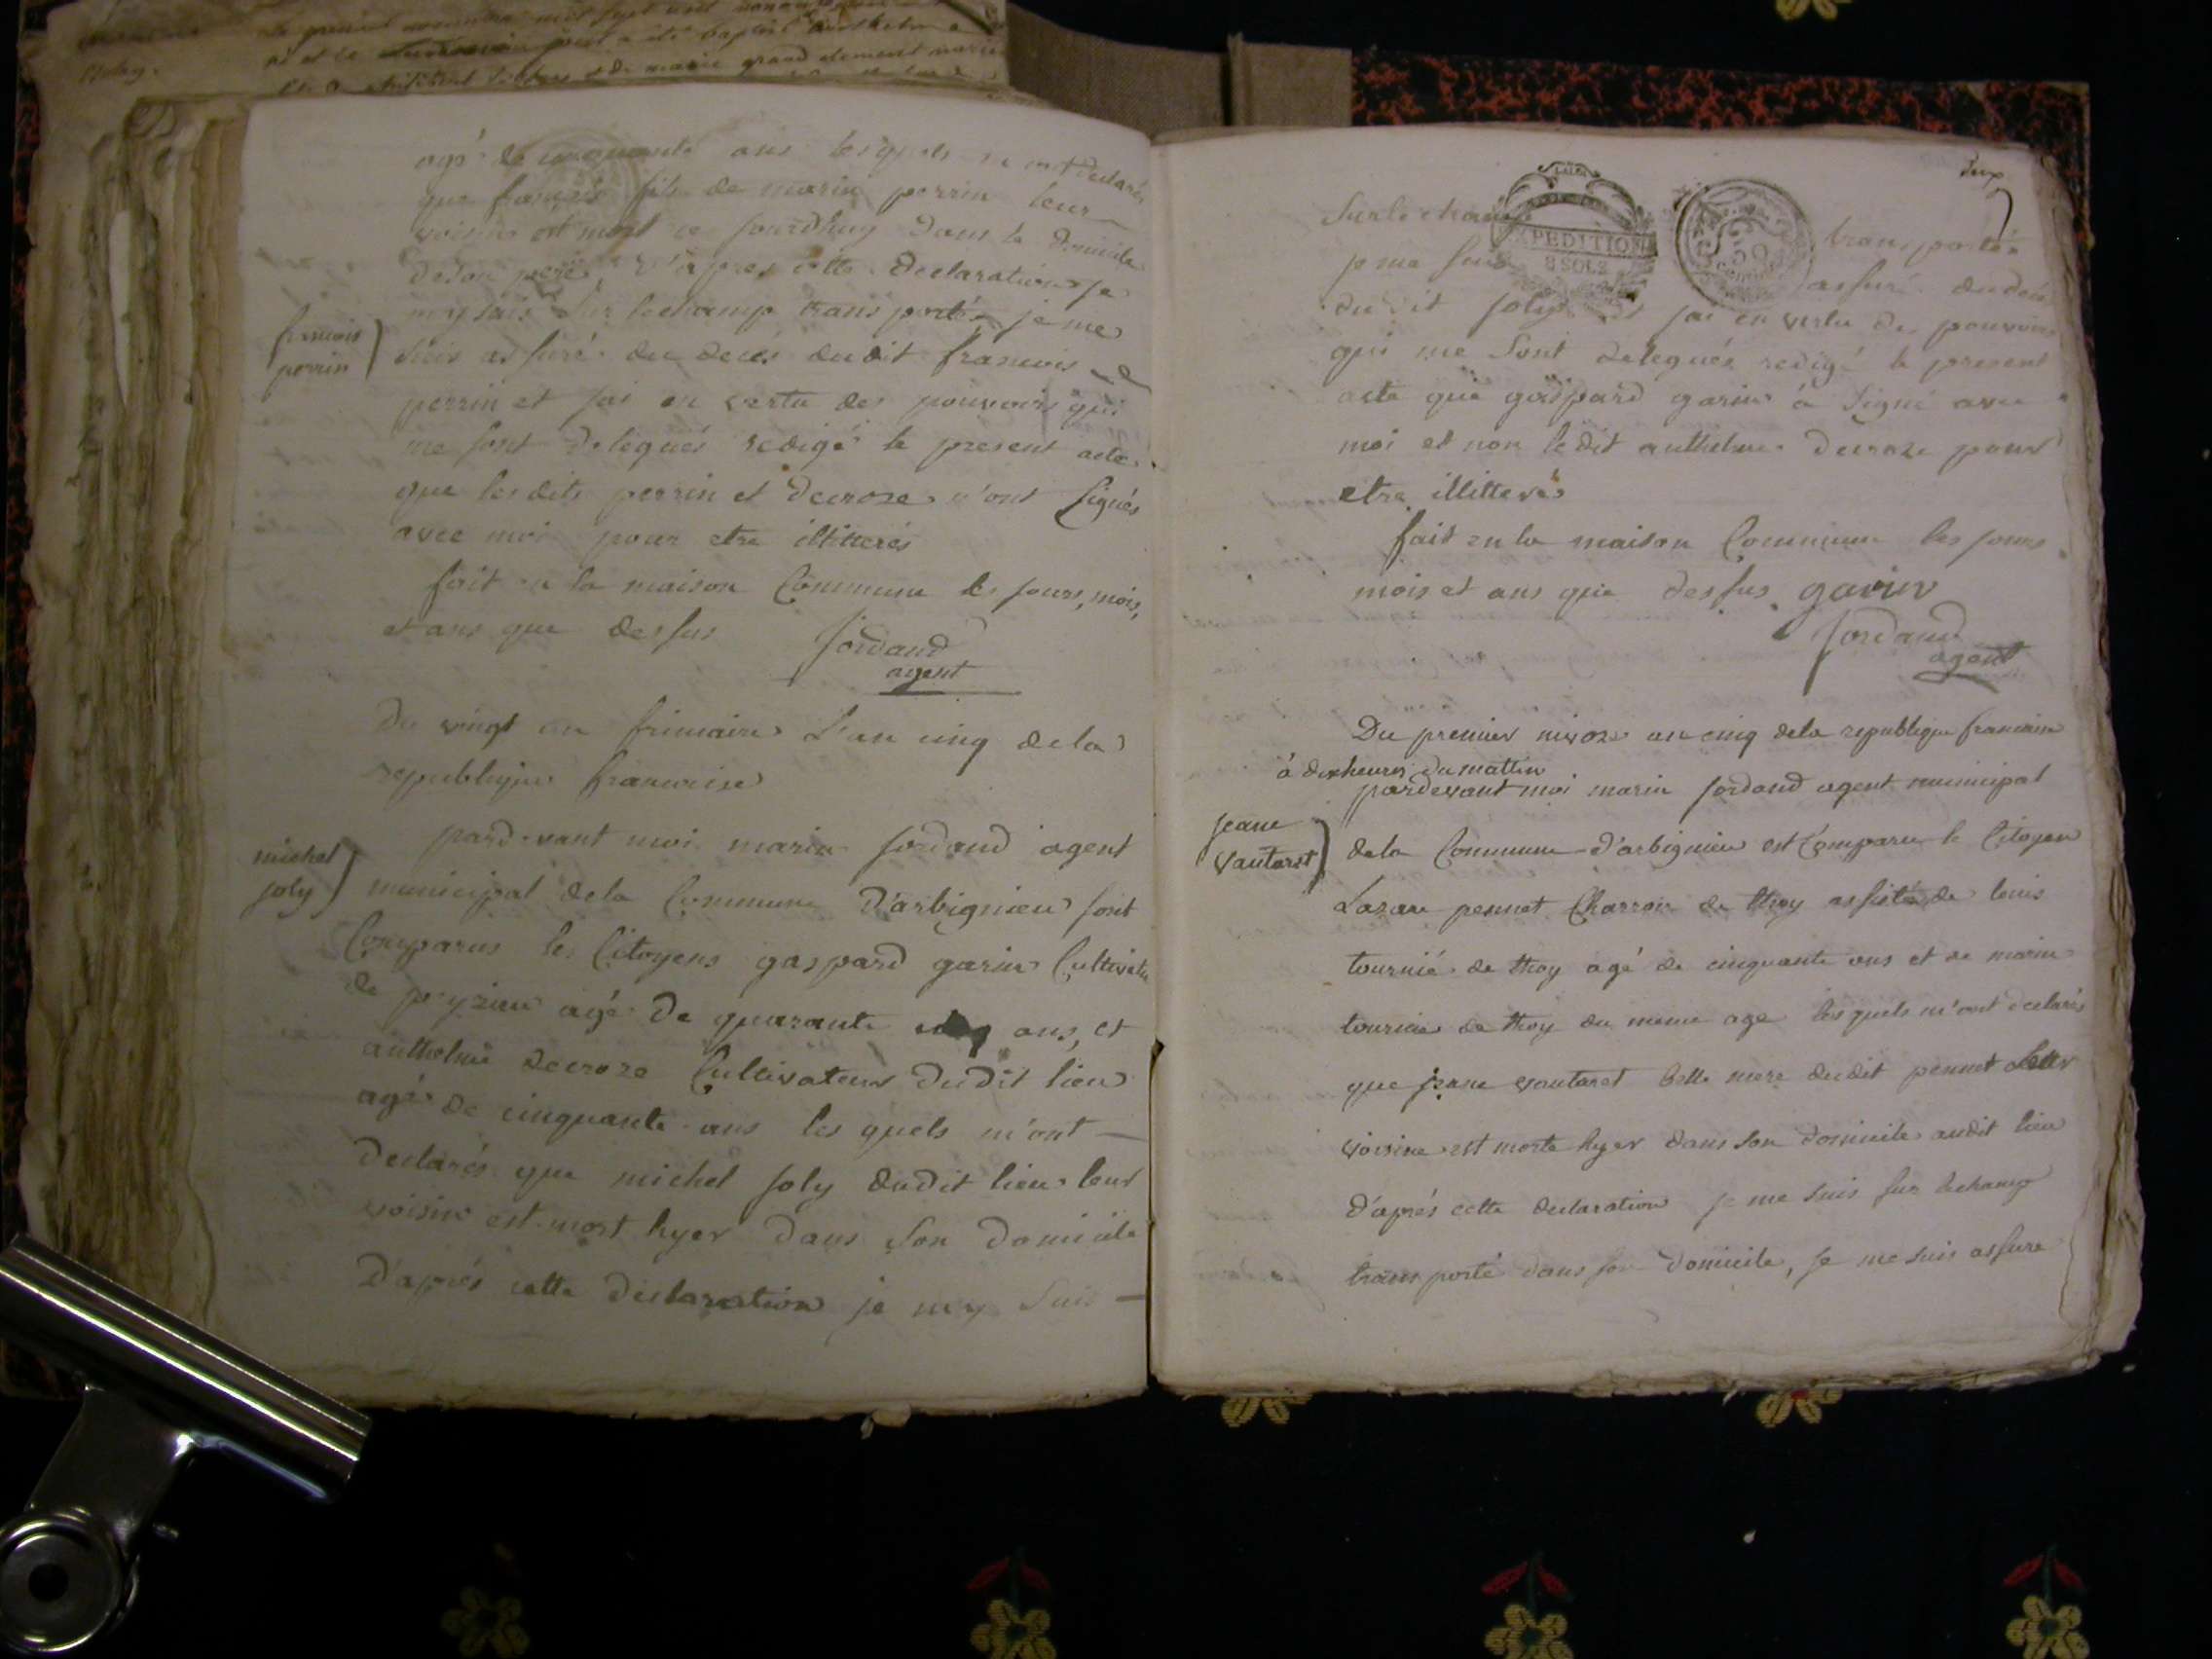 agé de cinquante ans lesquels m'ont declarés
que françois fils de marin perrin leur
voisin est mort ce jourdhuy dans le domicile
de son pere d'apres cette declaration je
my suis sur le champ transporté, je me
françois
perrin
suis assuré du decés dudit francois
perrin et jai en vertu des pouvoirs qui
me sont delegués redigé le present acte
que les dits perrin et decroze n'ont signés
avec moi pour etre illitterés
fait en la maison Commune les jours, mois,
et ans que dessus
jordand
agent
Du vingt un frimaire L'an cinq de la
republique francaise
pardevant moi marin jordand agent
michel
joly
municipal de la Commune D'arbignieu sont
Comparus les Citoyens gaspard garin Cultivateur
de peyzieu agé de quarante ans, et
anthelme decroze Cultivateur dudit lieu
agé de cinquante ans les quels m'ont
declarés que michel joly dudit lieu leur
voisin est mort hyer dans son domicile
D'aprés cette declaration je my suis
deux
Sur le champ transporté
EXPEDITION
8 SOLS
50
centimes
je me suis assuré du decés
du dit joly et jai en vertu des pouvoirs
qui me sont delegués redigé le present
acte que gaspard garin à signé avec
moi et non le dit anthelme decroze pour
etre illitterés
fait en la maison Commune les jours
mois et ans que dessus garin
jordand
agent
Du premier nivoze an cinq de la republique francaise
à dix heures du mattin
pardevant moi marin jordand agent municipal
jeane
vautaret
de la Commune d'arbignieu est Comparu le Citoyen
Lazare pennet Charron de thoy assisté de louis
tournié de thoy agé de cinquante ans et de marin
tournié de thoy du meme age les quels m'ont declarés
que jeane vautaret belle mere dudit pennet leur
voisine est morte hyer dans son domicile audit lieu
d'aprés cette declaration je me suis sur le champ
transporté dans son domicile, je me suis assuré